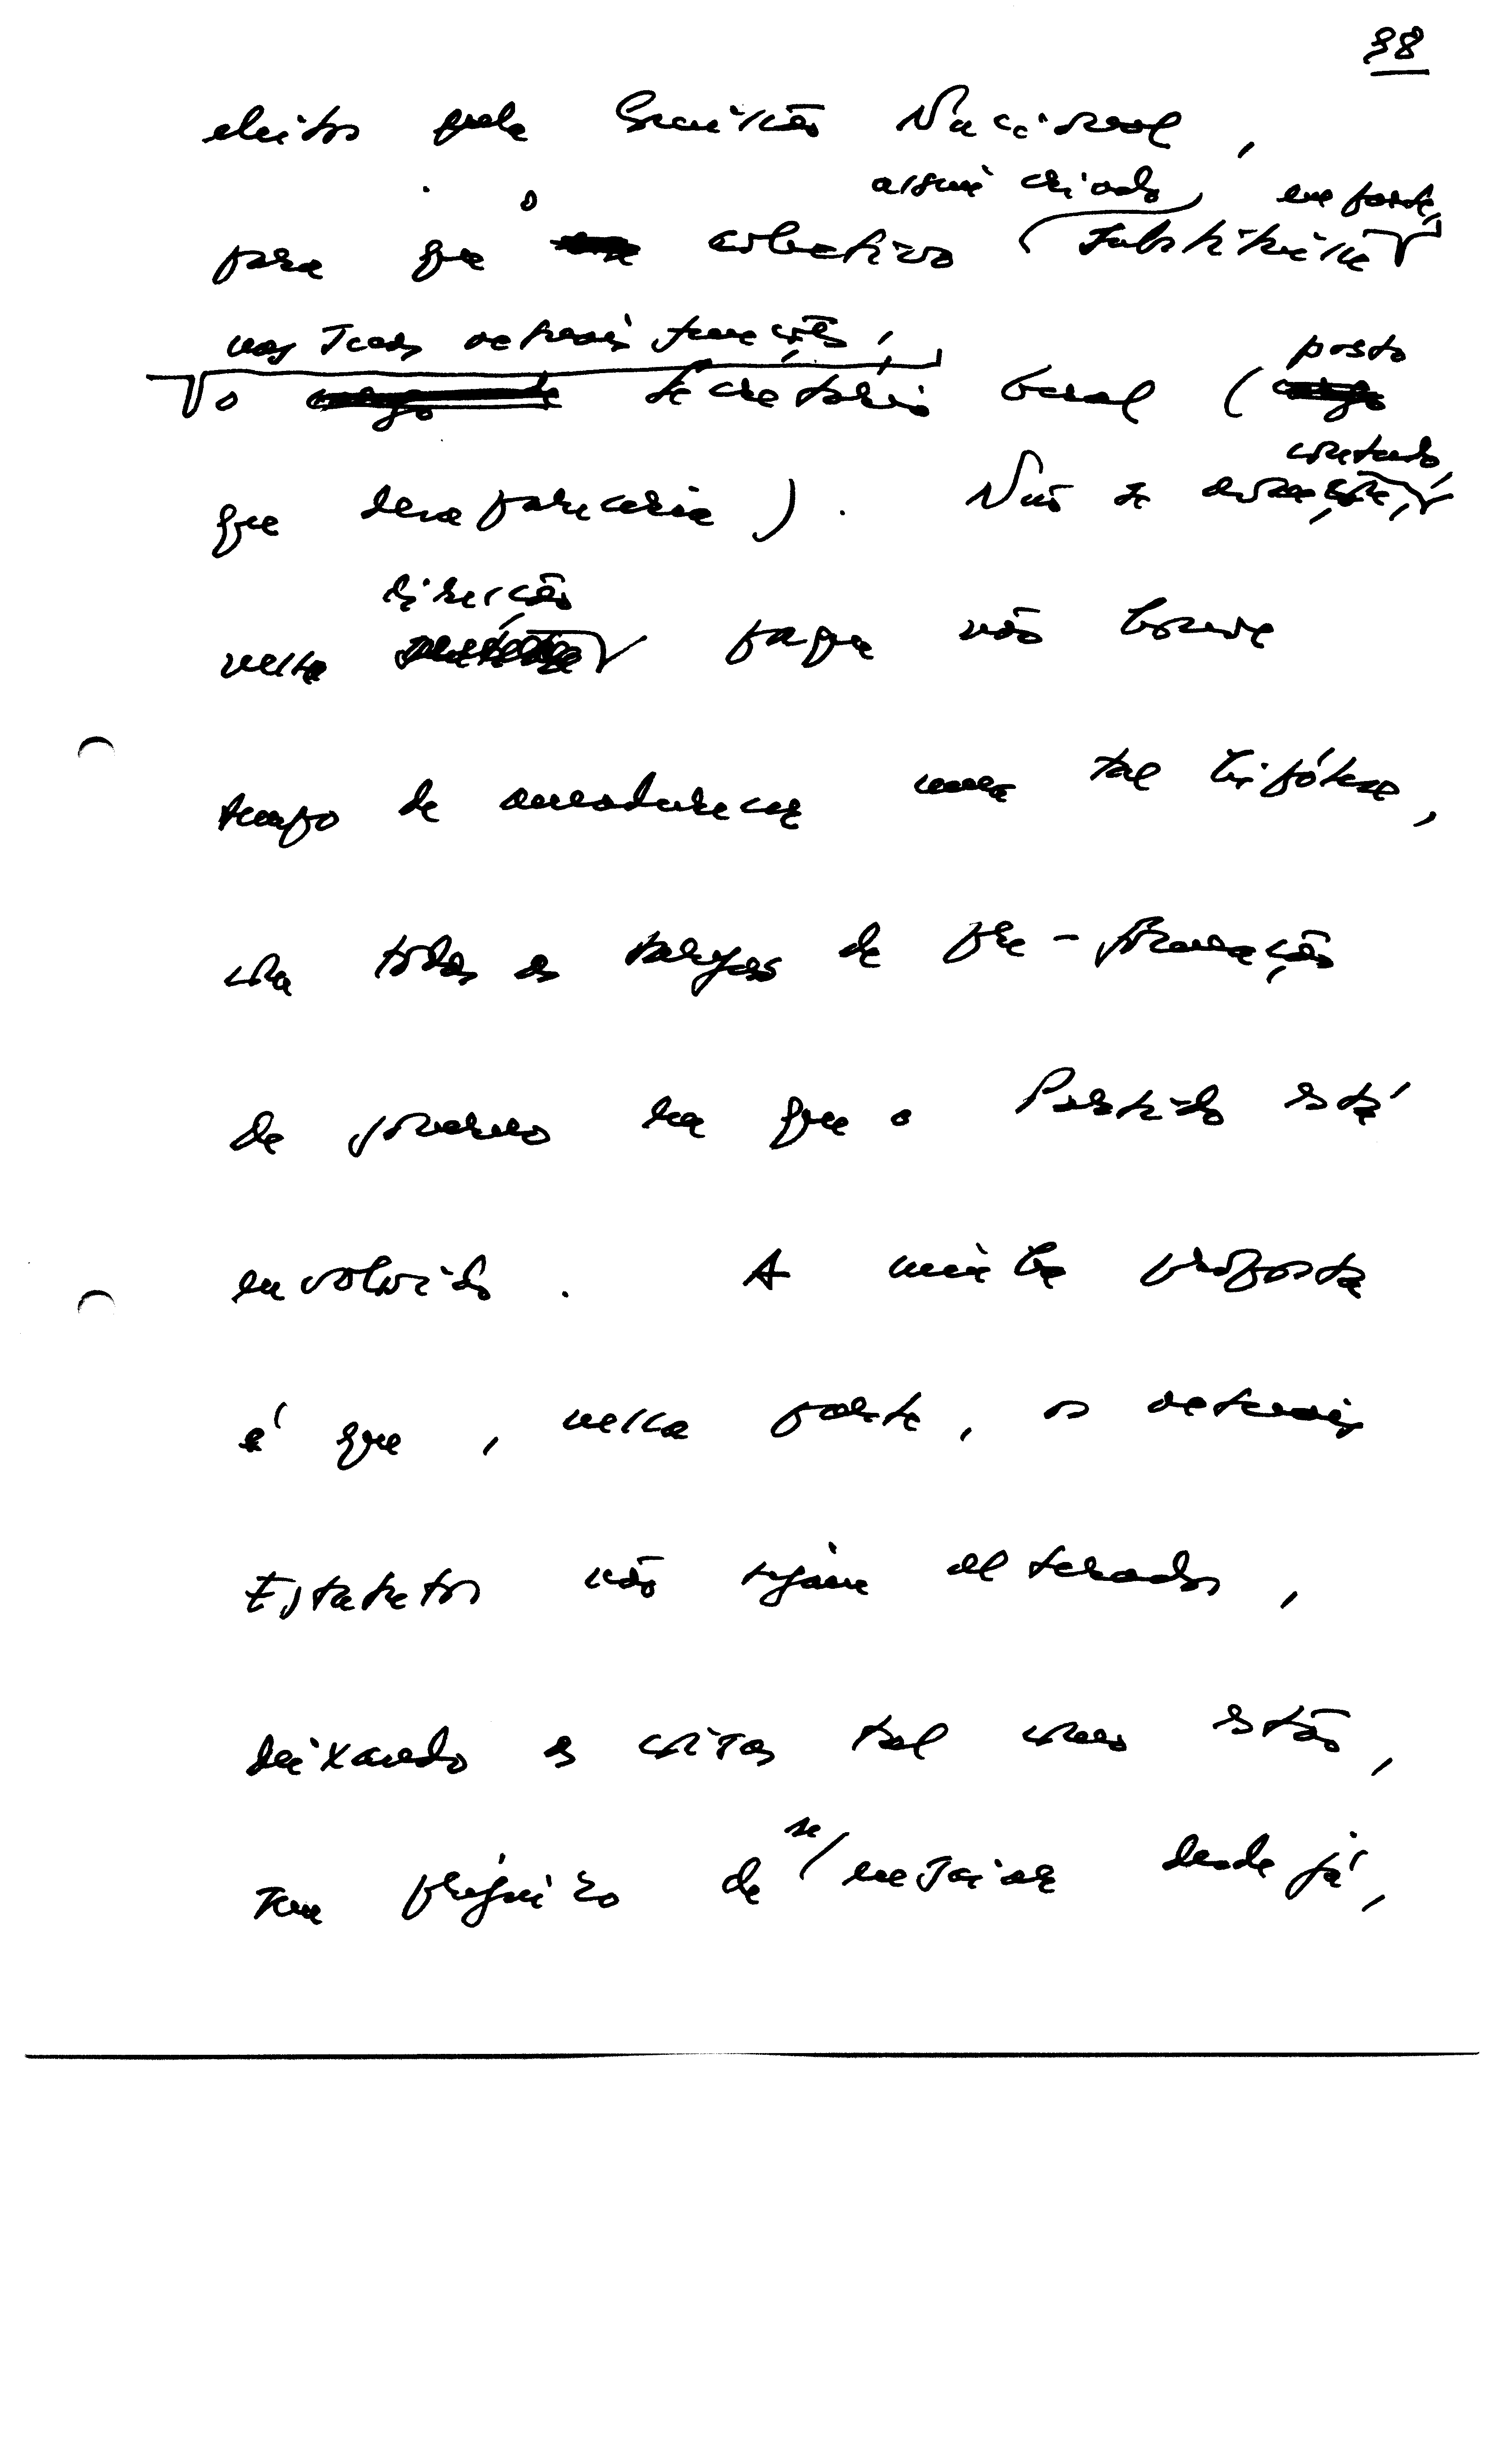 38
eleitos pela Comissão Nacional,
assim criado, em parte,
para que o colectivo (substituisse
nas suas actuais funções,
o Secretário Geral (posto
contudo,
que desapareceria). Não se avançou,
direcção
nesta porque não houve
tempo de amadurecer uma tal hipótese,
com todas as tarefas de pre-formação
de governo em que o Partido está
envolvido. A minha proposta
é que, nessa parte, os actuais
Estatutos não sejam alterados,
deixando as coisas tal como estão,
sem prejuízo de se/ensaiar desde já,